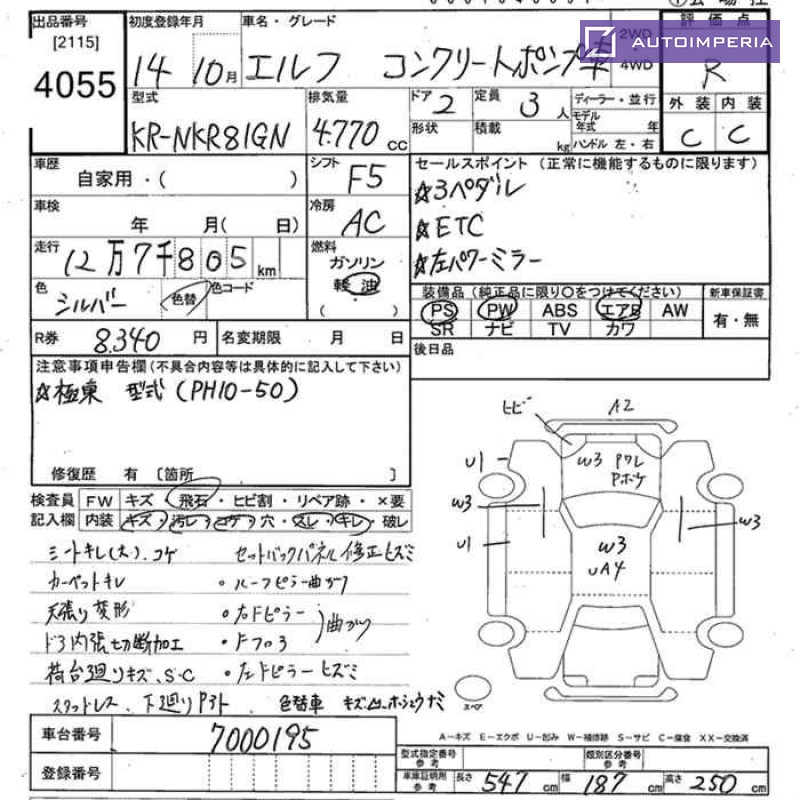 出品番号 初度登録年月 車名・グレード 2WD 評価点
[2115]
4055 14 10月 エルフ コンクリートポンプ車 4WD R
AUTOIMPERIA
型式 排気量 ドア 2 定員 3人 ディーラー・並行 外装 内装
KR-NKR81GN 4.770cc 形状 積載 kg モデル年式 年 C C
ハンドル 左・右
車歴 自家用・( ) シフト F5 セールスポイント (正常に機能するものに限ります)
☆3ペダル
車検 年 月( 日) 冷房 AC ☆ETC
走行 12万7千805km 燃料 ガソリン ☆左パワーミラー
軽油
( )
色 シルバー 色替 色コード 装備品(純正品に限り○をつけてください) 新車保証書
PS PW ABS エアB AW 有・無
SR ナビ TV カワ
R券 8.340円 名変期限 月 日 後日品
注意事項申告欄(不具合内容等は具体的に記入して下さい)
☆極東 型式(PH10-50)
修復歴 有 〔箇所 〕
検査員 FW キズ・飛石・ヒビ割・リペア跡・×要
記入欄 内装 キズ・汚レ・コゲ・穴・スレ・キレ・破レ
シートキレ(大).コゲ セットバックパネル修正ヒズミ
カーペットキレ ・ルーフピラー曲ガリ
天張り変形 ・右Fピラー
曲ガリ
ドア内張切断加工 ・Fフロア
荷台廻りキズ、S.C ・左Fピラーヒズミ
スタットレス、下廻りサビ 色替車
ヒビ A2
U1 W3 Pワレ
Pボケ
W3 W3
U1 W3
UA4
スペア
A-キズ E-エクボ U-凹み W-補修跡 S-サビ C-腐食 XX-交換済
車台番号 7000195
登録番号
型式指定番号 参考 類別区分番号 参考
車庫証明用 参考 長さ 547cm 幅 187cm 高さ 250cm